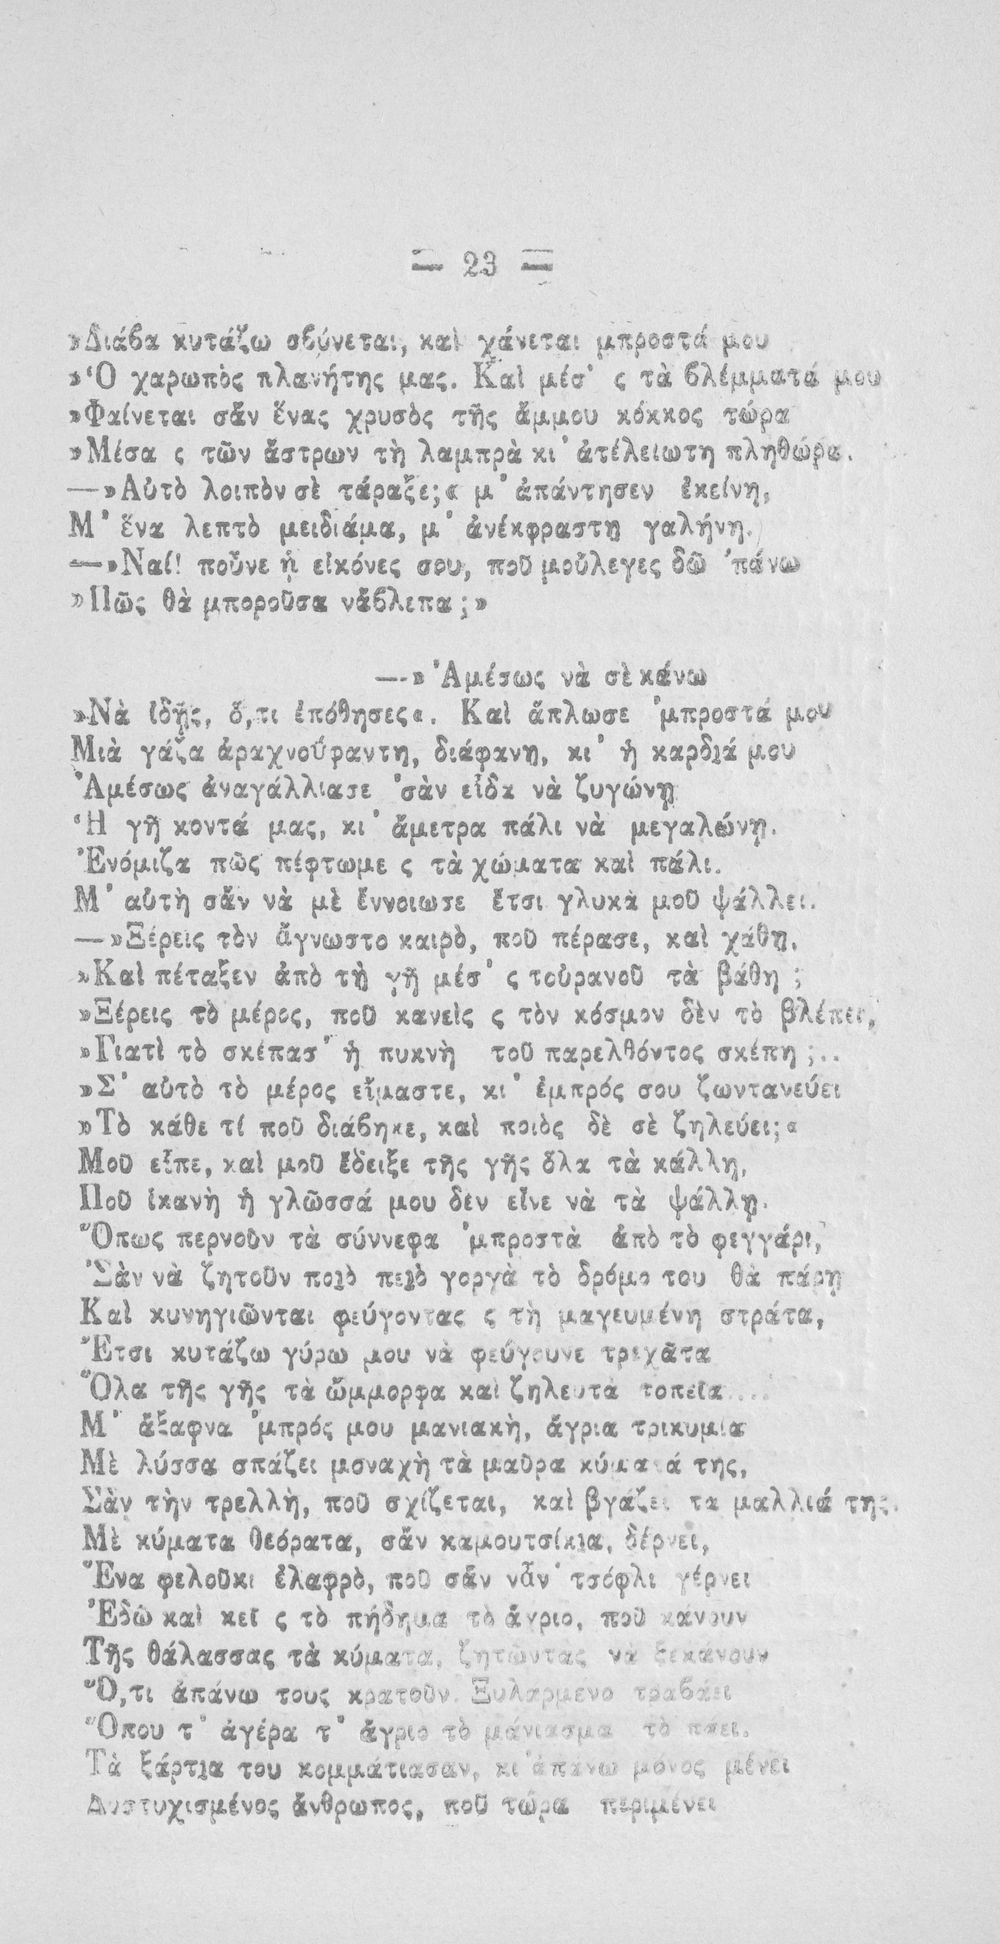 — 23 —
»Διάβα κυτάζω σβύνεται, καὶ χάνεται μπροστά μου
»Ὁ χαρωπὸς πλανήτης μας. Καὶ μέσ' ς τὰ βλέμματά μου
»Φαίνεται σἂν ἕνας χρυσὸς τῆς ἄμμου κόκκος τώρα
»Μέσα ς τῶν ἄστρων τὴ λαμπρὰ κι' ἀτέλειωτη πληθώρα.
—»Αὐτὸ λοιπὸν σὲ τάραξε;« μ' ἀπάντησεν ἐκείνη,
Μ' ἕνα λεπτὸ μειδιάμα, μ' ἀνέκφραστη γαλήνη.
—»Ναί! ποὖνε ἡ εἰκόνες σου, ποῦ μοὔλεγες δῶ 'πάνω
»Πῶς θὰ μποροῦσα νἄβλεπα;»
—»Ἀμέσως νὰ σὲ κάνω
»Νὰ ἰδῇς, ὅ,τι ἐπόθησες«. Καὶ ἄπλωσε 'μπροστά μου
Μιὰ γάζα ἀραχνοΰφαντη, διάφανη, κι' ἡ καρδιά μου
Ἀμέσως ἀναγάλλιασε 'σὰν εἶδα νὰ ζυγώνῃ
Ἡ γῆ κοντά μας, κι' ἄμετρα πάλι νὰ μεγαλώνῃ.
Ἐνόμιζα πῶς πέφτωμε ς τὰ χώματα καὶ πάλι.
Μ' αὐτὴ σἂν νὰ μὲ ἔννοιωσε ἔτσι γλυκὰ μοῦ ψάλλει.
—»Ξέρεις τὸν ἄγνωστο καιρὸ, ποῦ πέρασε, καὶ χάθη,
»Καὶ πέταξεν ἀπὸ τὴ γῆ μέσ' ς τοὐρανοῦ τὰ βάθη ;
»Ξέρεις τὸ μέρος, ποῦ κανεὶς ς τὸν κόσμον δὲν τὸ βλέπει,
»Γιατὶ τὸ σκέπασ' ἡ πυκνὴ τοῦ παρελθόντος σκέπη ;..
»Σ' αὐτὸ τὸ μέρος εἴμαστε, κι' ἐμπρός σου ζωντανεύει
»Τὸ κάθε τί ποῦ διάβηκε, καὶ ποιὸς δὲ σὲ ζηλεύει;«
Μοῦ εἶπε, καὶ μοῦ ἔδειξε τῆς γῆς ὅλα τὰ κάλλη,
Ποῦ ἱκανὴ ἡ γλῶσσά μου δὲν εἶνε νὰ τὰ ψάλλῃ.
Ὅπως περνοῦν τὰ σύννεφα 'μπροστὰ ἀπὸ τὸ φεγγάρι,
Σὰν νὰ ζητοῦν ποιὸ πειὸ γοργὰ τὸ δρόμο του θὰ πάρῃ
Καὶ κυνηγιῶνται φεύγοντας ς τὴ μαγευμένη στράτα,
Ἔτσι κυτάζω γύρω μου νὰ φεύγουνε τρεχᾶτα
Ὅλα τῆς γῆς τὰ ὤμμορφα καὶ ζηλευτὰ τοπεῖα....
Μ' ἄξαφνα 'μπρός μου μανιακὴ, ἄγρια τρικυμία
Μὲ λύσσα σπάζει μοναχὴ τὰ μαῦρα κύματά της,
Σὰν τὴν τρελλὴ, ποῦ σχίζεται, καὶ βγάζει τὰ μαλλιά της.
Μὲ κύματα θεόρατα, σἂν καμουτσίκια, δέρνει,
Ἕνα φελοῦκι ἐλαφρὸ, ποῦ σἂν νἆν' τσόφλι γέρνει
Ἐδῶ καὶ κεῖ ς τὸ πήδημα τὸ ἄγριο, ποῦ κάνουν
Τῆς θάλασσας τὰ κύματα, ζητῶντας νὰ ξεκάνουν
Ὅ,τι ἀπάνω τους κρατοῦν. Ξυλάρμενο τραβάει
Ὅπου τ' ἀγέρα τ' ἄγριο τὸ μάνιασμα τὸ πάει.
Τὰ ξάρτια του κομμάτιασαν, κι' ἀπάνω μόνος μένει
Δυστυχισμένος ἄνθρωπος, ποῦ τώρα περιμένει